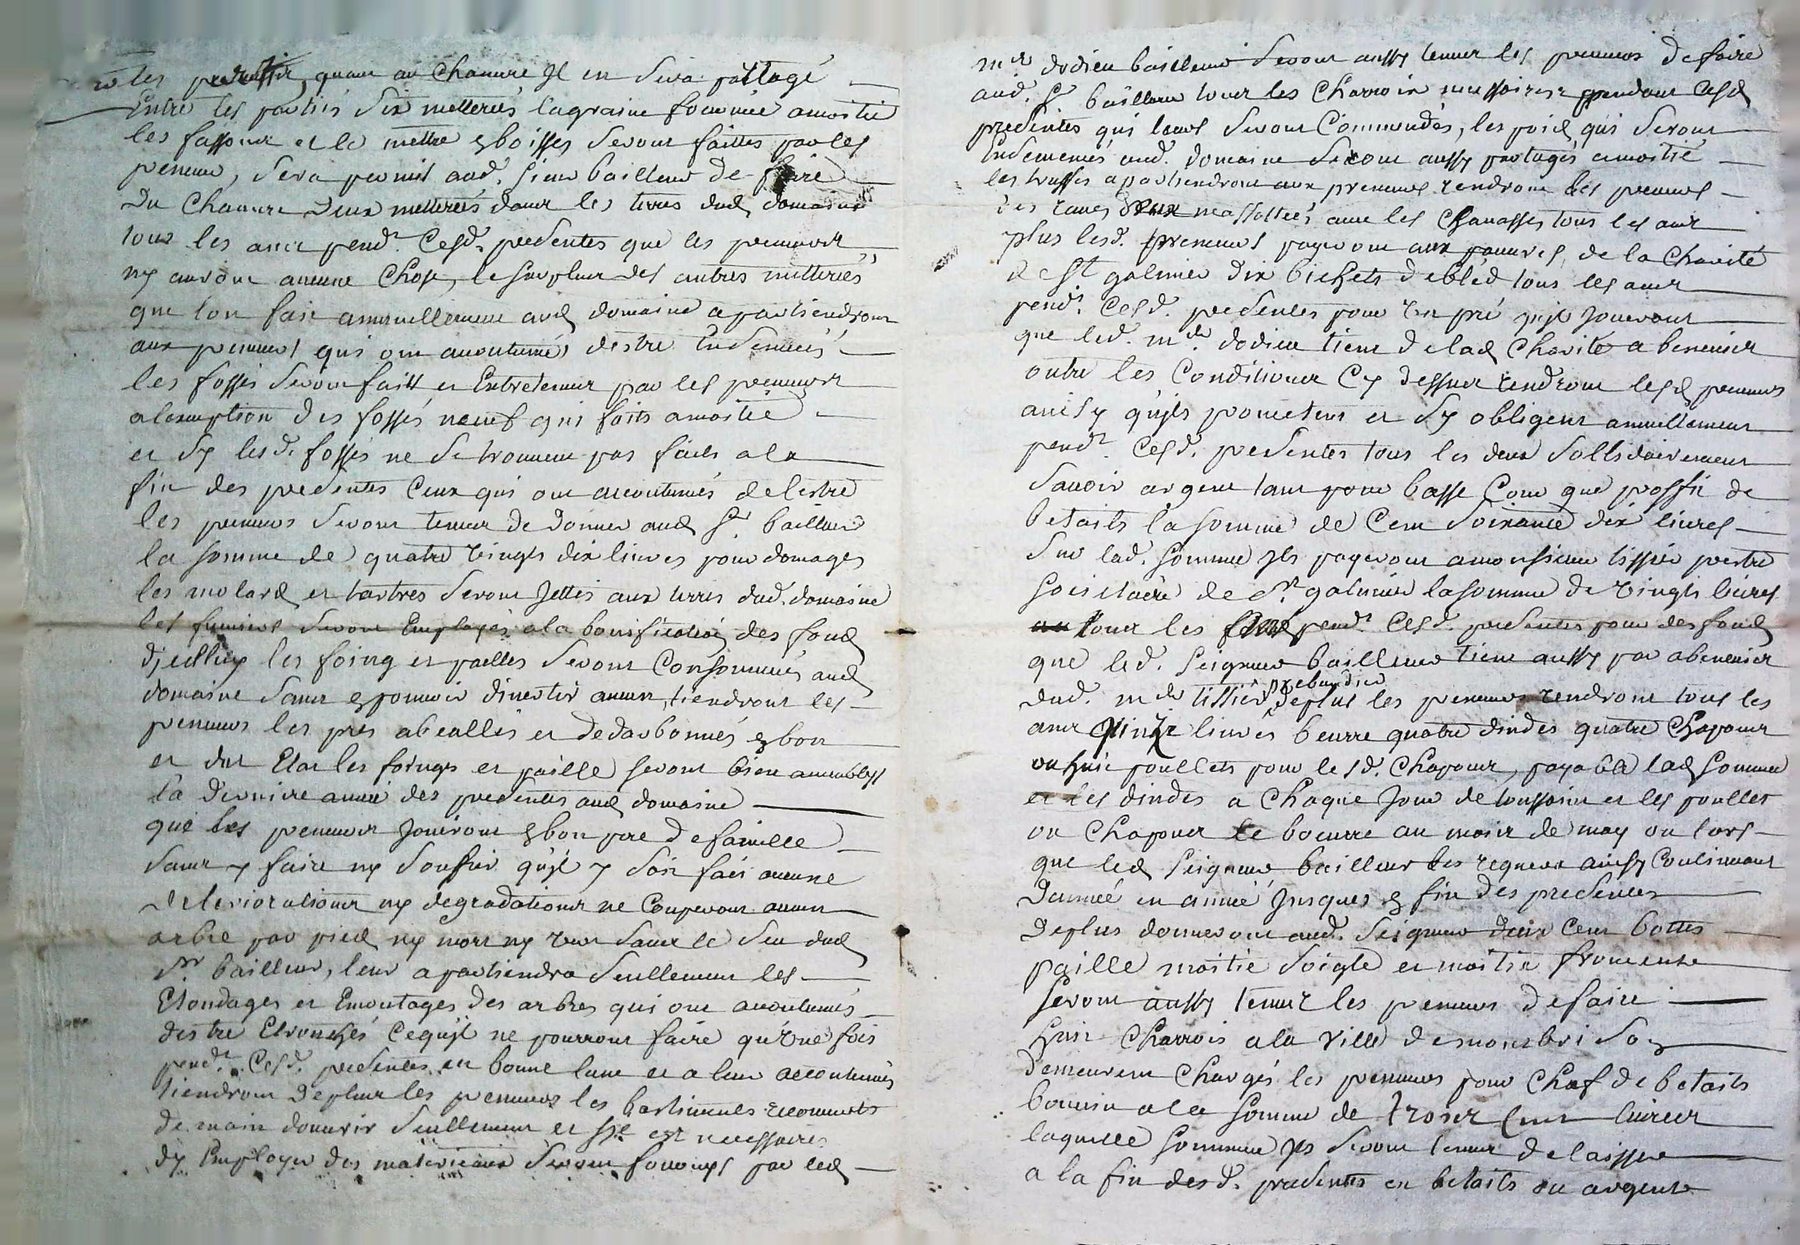 les quant au Chanvre Jl en Sera partagé
Entre les partiés Six metterés lagraine fournie amoitié
les fassons et le mettre boisses Seront faittes par les
preneurs, Sera permit aud. sieur bailleur de faire
Du Chanvre Deux metterés dans les terres dud domaine
tous les ans pend.t Cesd. presentes que les preneurs
ny auront aucune Chose, le Surplus des autres metterées
que lon fait annuellement aud domaine apartiendront
aux preneurs qui ont acoutumés destre Ensemencés
les fossés Seront faits et Entretenus par les preneurs
alexception des fossés neuf qui faits amoitié
et Sy lesd. fossés ne Se trouvent pas faits ala
fin des presentes Ceux qui ont acoutumés de lestre
les preneurs Seront tenus de donner aud Sr bailleur
la somme de quatre vingts dix livres pour domages
les molard et tartres Seront Jettés aux terres dud. domaine
les fumiers Seront Employés ala bonification des fond
dJcelluy les foing et pailles Seront Consommés aud
domaine Sans pouvoir divertir aucun, tiendront les
preneurs les prés abeallés et dedarbonnés bon
et du Etat les foings et paille seront bien
la derniere année des presentes aud domaine
que les preneurs Jouiront bon pere defamille
Sans y faire ny Soufrir quJl y Soit fait aucune
deteriorations ny degradations ne Couperont aucun
arbre par pied ny mort ny vert Sans le Seu dud
Sr bailleur, leur apartiendra Seullement les
Elondages et Emontages des arbres qui ont acoutumés
destre Etronchés CequJl ne pourront faire quvne fois
pend.t Cesd. presentes en bonne lune et a leur acoutumés
tiendront Deplus les preneurs les bastiments recouverts
de main douvrir Seullement et est necessaire
dy Employer des materieaux Seront fournys par led
mr dodieu bailleur Seront aussy tenus les preneurs Defaire
aud. Sr. bailleur tous les Charrois necessaires pendant Cesd
presentes qui leurs Seront Commendés, les poid qui Seront
Ensemencés aud. domaine Seront aussy partagés amoitié
les truffes apartiendront aux preneurs rendront les preneurs
les raves avec les Chanasses tous les ans
plus lesd. preneurs payeront aux pauvres de la Charité
de St galmier dix bichets debled tous les ans
pend.t Cesd. presentes pour vn pré quJls Jouiront
que led. mr. dodieu tient de lad Charité a benevisé
outre les Conditions Cy dessus rendront lesd preneurs
ainsy quJls prometent et Sy obligent annuellement
pend.t Cesd. presentes tous les deux Sollidairement
Savoir argent tant pour basse Cour que proffit de
betails la somme de Cent Soixante dix livres
Sur lad. somme Jls payeront amonsieur tissier prestre
Societaire de St. galmier lasomme de vingts livres
tous les pend.t Cesd. presentes pour des fond
que led. seigneur bailleur tient aussy par abenevisé
dud. mr tissier prebandier Deplus les preneurs rendront tous les
ans quinze livres beurre quatre dindes quatre Chapons
ou huit poullets pour lesd. Chapons, payable lad somme
et les dindes a Chaque Jour de toussaint et les poullets
ou Chapons le beurre au mois de may ou lors
que led Seigneur bailleur les requera ainsy Continuant
Dannée en année Jusques fin des presentes
Deplus donneront aud. Seigneur deux Cent bottes
paille moitié Soigle et moitié fromente
Seront aussy tenus les preneurs defaire
huit Charrois ala Ville demontbrison
demeurent Chargés les preneurs pour Chaf debetails
bouvin ala Somme de trois Cent livres
laquelle somme Jls Seront tenus delaisser
a la fin desd. presentes en betails ou argents